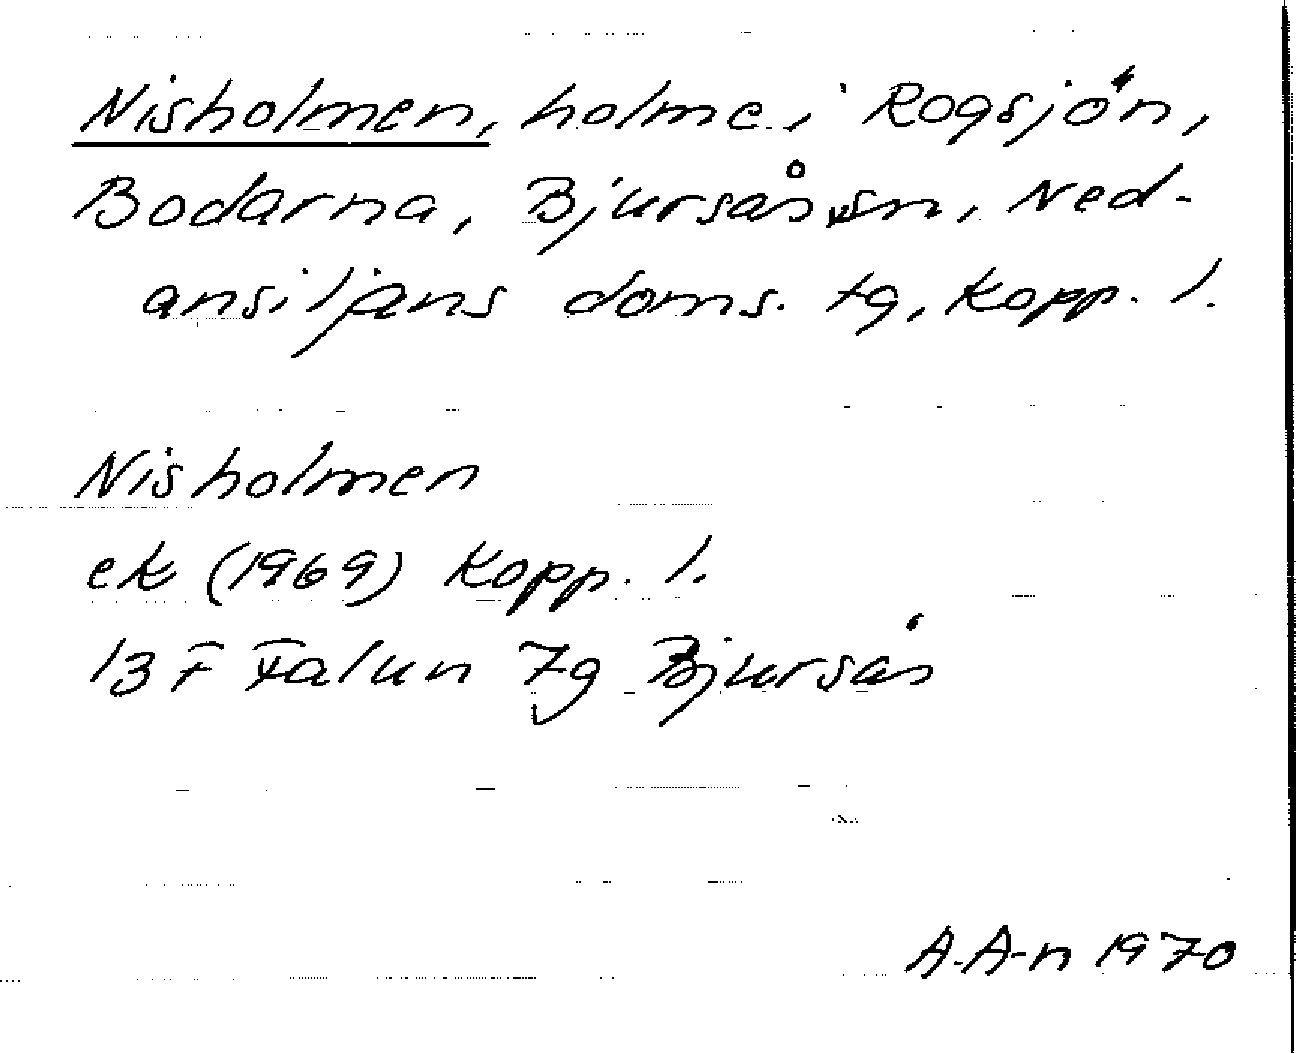 Nisholmen, holme i Rogsjön,
Bodarna, Bjursås sn, Ned-
ansiljans doms. tg, Kopp. l.
Nisholmen
ek (1969) Kopp. l.
13 F Falun 7g Bjursås
A.A-n 1970